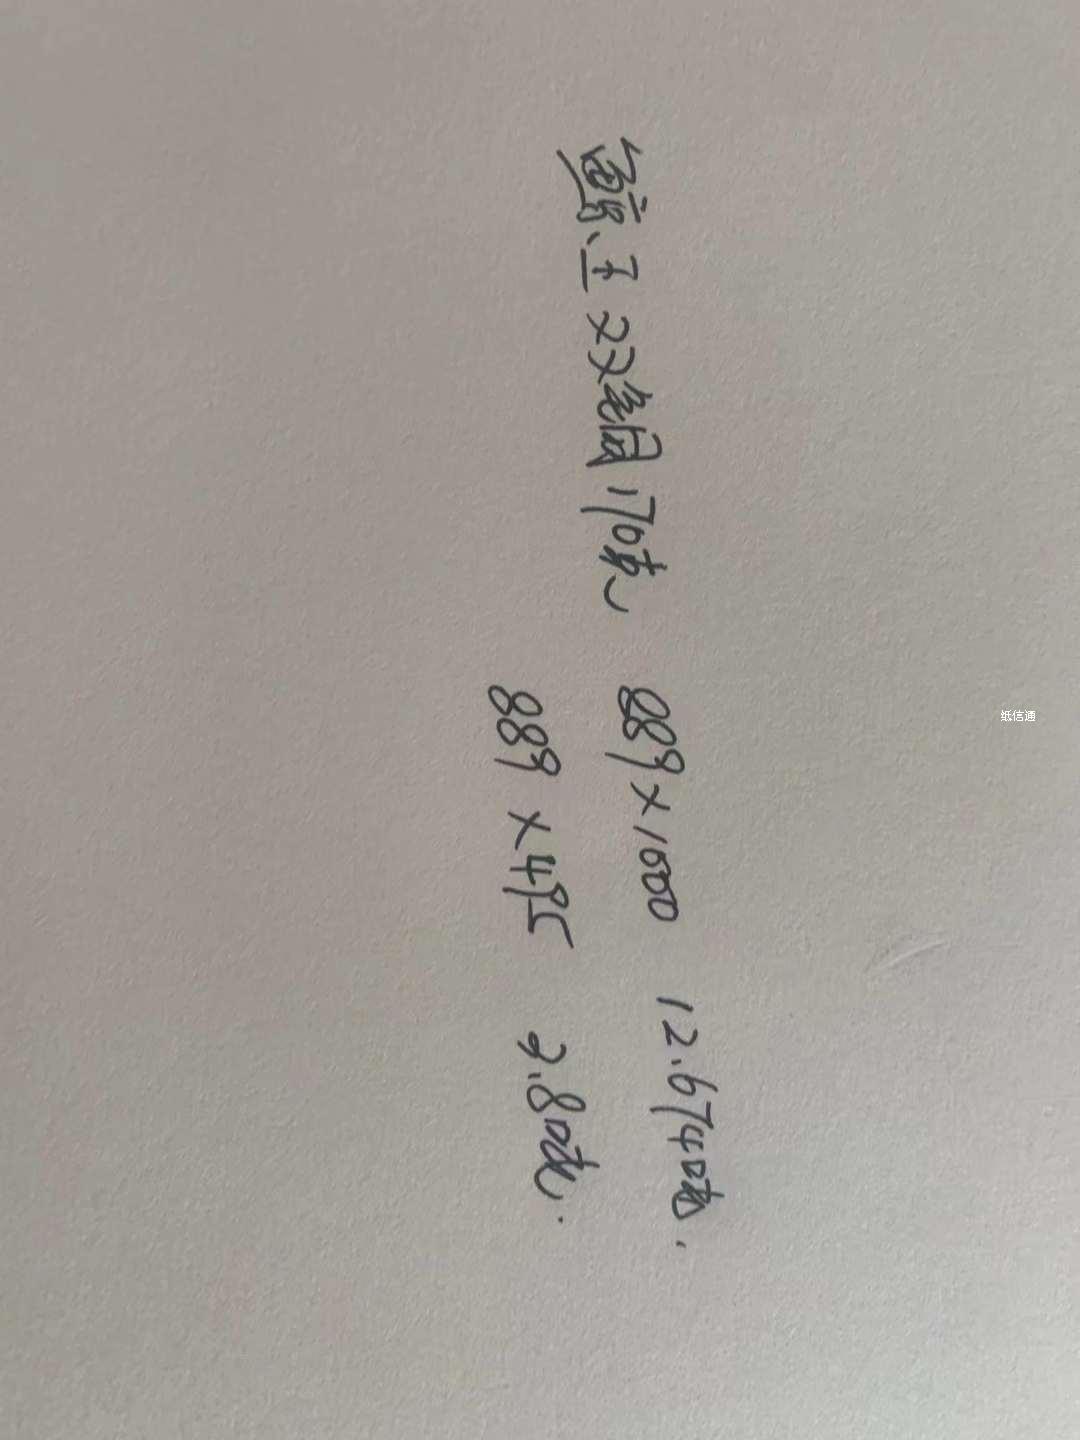 鲸王双铜170克 889×1000 12.674吨.
889×495 2.8吨.
纸信通